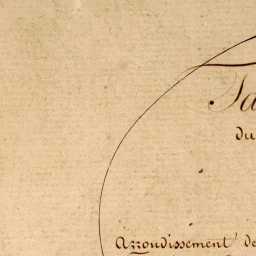 du
Arrondissement de